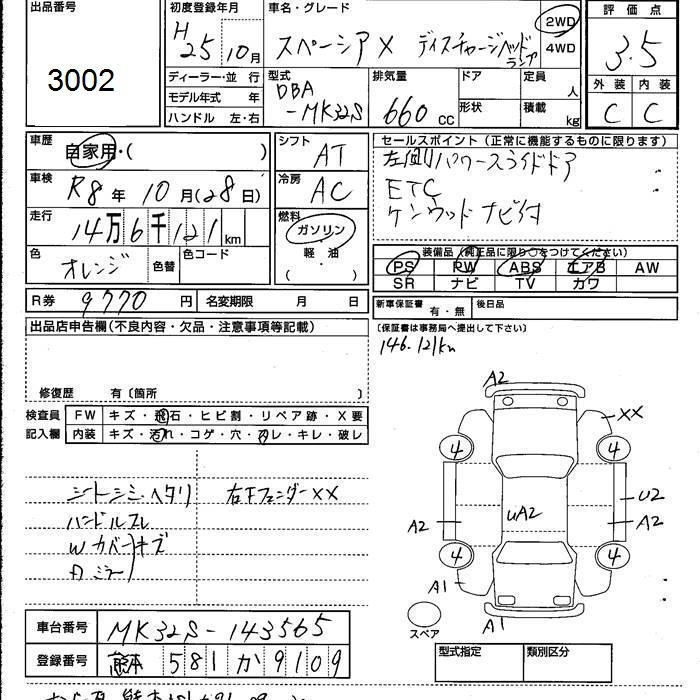 出品番号
3002
初度登録年月
H25年10月
車名・グレード
スペーシア X ディスチャージヘッドランプ
2WD
4WD
評価点
3.5
外装 内装
C C
ディーラー・並行
モデル年式 年
ハンドル 左・右
型式
DBA
-MK32S
排気量
660 cc
ドア
形状
定員
人
積載
kg
車歴
自家用・( )
車検
R8年10月(28日)
走行
14万6千121km
色
オレンジ
色替
色コード
シフト
AT
冷房
AC
燃料
ガソリン
軽油
( )
セールスポイント(正常に機能するものに限ります)
左側パワースライドドア
ETC
ケンウッドナビ付
装備品(純正品に限り○をつけてください)
PS PW ABS エアB AW
SR ナビ TV カワ
R券 9770円
名変期限 月 日
新車保証書 有・無
後日品
(保証書は事務局へ提出して下さい)
146.121km
出品店申告欄(不良内容・欠品・注意事項等記載)
修復歴 有〔箇所 〕
検査員
記入欄
FW キズ・飛石・ヒビ割・リペア跡・X要
内装 キズ・汚れ・コゲ・穴・スレ・キレ・破レ
シートシミ・ヘタリ
右Fフェンダー××
ハンドルスレ
Wカバーキズ
A2
XX
4 4
uA2
U2
A2 A2
4 4
A1
A1
スペア
車台番号 MK32S-143565
登録番号 熊本 581 か 9109
型式指定
類別区分